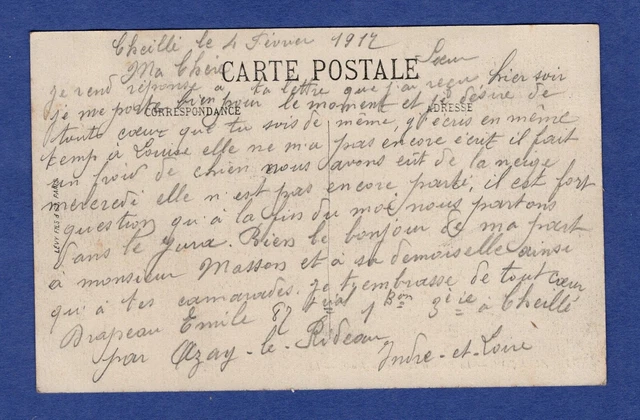 Cheillé le 4 Février 1917
Ma Chère Sœur
CARTE POSTALE
je rend réponse a ta lettre que j'ai reçu hier soir
je me porte bien pour le moment et je désire de
CORRESPONDANCE
ADRESSE
toute cœur que tu sois de même, j'écris en même
temp à Louise elle ne m'a pas encore écrit il fait
un froid de chien nous avons eut de la neige
mercredi elle n'est pas encore parti, il est fort
question qu'a la fin du moi nous partons
dans le Jura. Bien le bonjour de ma part
à monsieur Masson et à sa demoiselle ainsi
qu'à tes camarades. Je t'embrasse de tout cœur
Drapeau Emile 82 1 Bon 3 ie à Cheillé
par Azay-le-Rideau
Indre-et-Loire